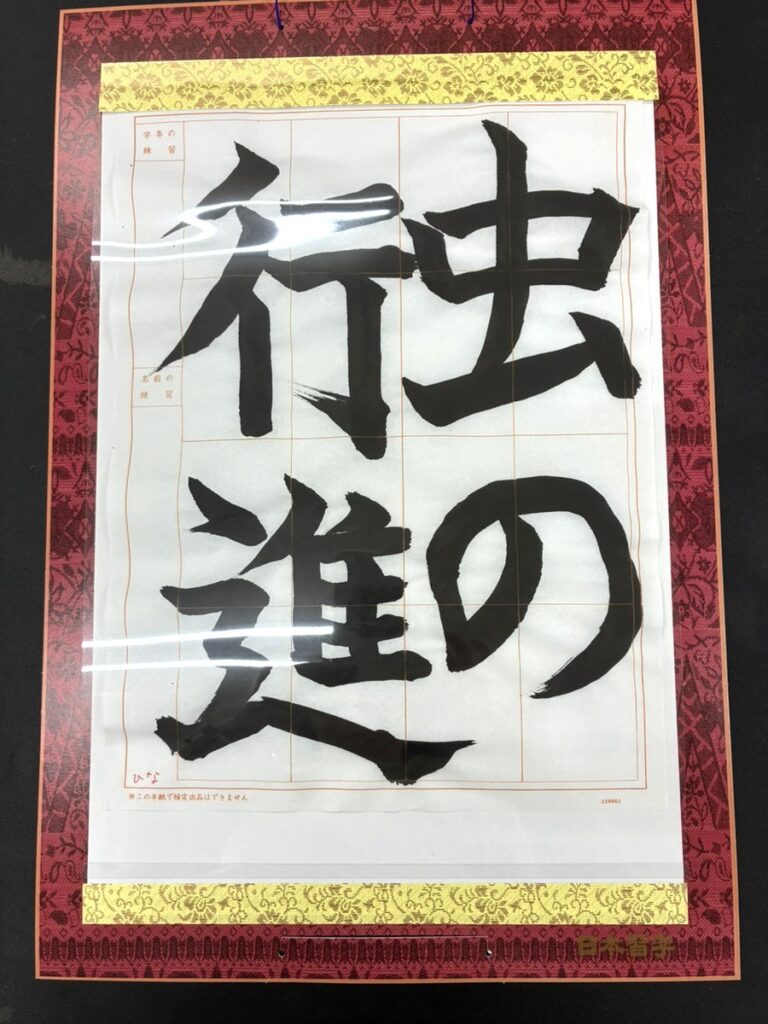 虫の
行進
学年の
練習
名前の
練習
ひな
※この半紙で検定出品はできません
230801
日本習字